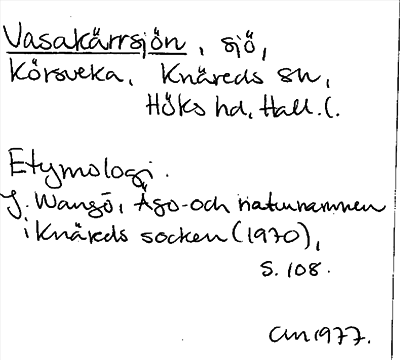 Vasakärrsjön, sjö,
Körsveka, Knäreds sn,
Höks hd, Hall. l.
Etymologi.
J. Wangö, Ägo- och naturnamnen
i Knäreds socken (1970),
s. 108.
1977.